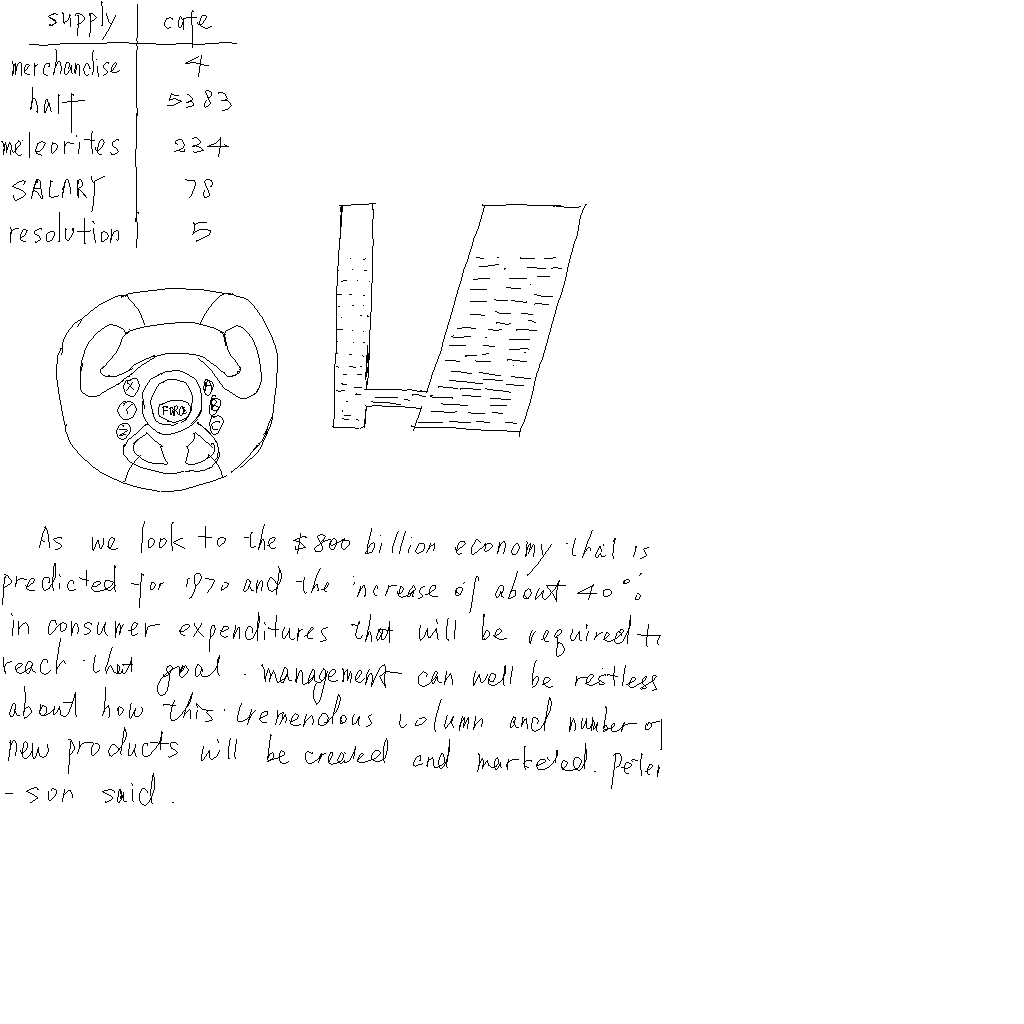 supply cafe
merchandise 4
half 5383
meteorites 234
SALARY 78
resolution 5
X
Y
Z
FORCE
As we look to the $800 billion economy that is
predicted for 1970 and the increase of about 40%
in consumer expenditures that will be required to
reach that goal. management can well be restless
about how this tremendous column and number of
new products will be created and marketed. Peter
-son said.